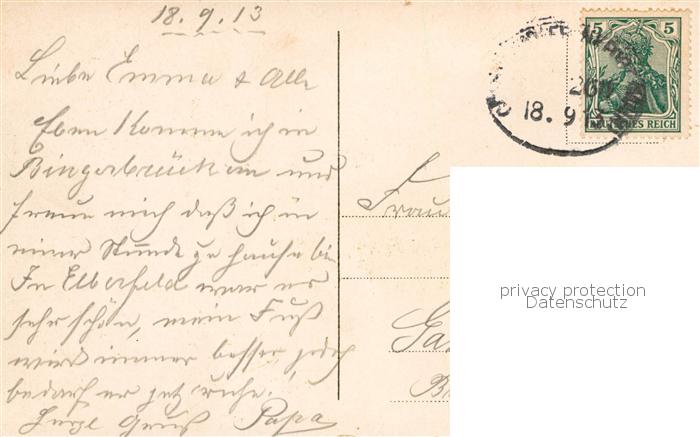 18.9.13
Liebe Emma & Alle
Eben komme ich in
Bingerbrück an und
freue mich daß ich in
einer Stunde zu hause bin
In Elberfeld war es
sehr schön, mein Fuß
wird immer besser, jedoch
bedarf er jetz ruhe.
Herzl Gruß Papa
5 5
DEUTSCHES REICH
18.9.13
Frau
privacy protection
Datenschutz
Ga
B